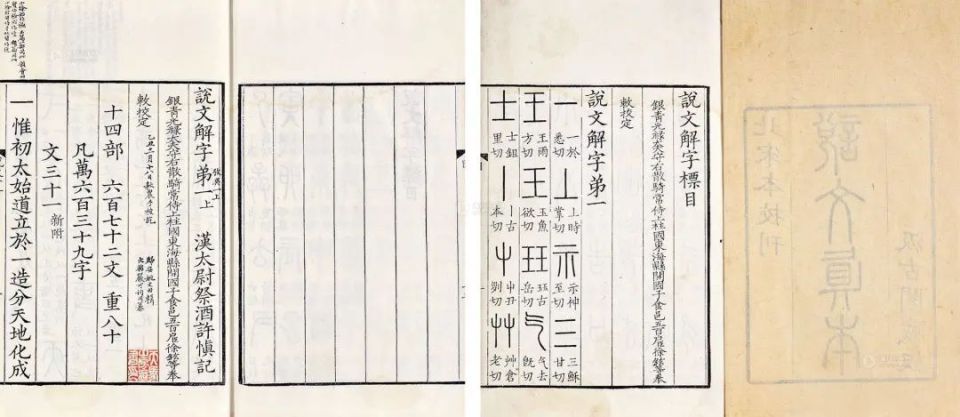 汲古閣
說文真本
北宋本校刊
說文解字標目
銀青光祿大夫守右散騎常侍上柱國東海縣開國子食邑五百戶徐鉉等奉
敕校定
說文解字弟一
一 一於悉切 丄 上時掌切 示 示神至切 三 三穌甘切
王 王雨方切 玉 玉魚欲切 玨 玨古岳切 气 气去旣切
士 士鉏里切 丨 丨古本切 屮 屮丑列切 艸 艸倉老切
說文解字弟一上 漢太尉祭酒許慎記
銀青光祿大夫守右散騎常侍上柱國東海縣開國子食邑五百戶徐鉉等奉
敕校定
十四部 六百七十二文 重八十
凡萬六百三十九字
文三十一新附
一惟初太始道立於一造分天地化成